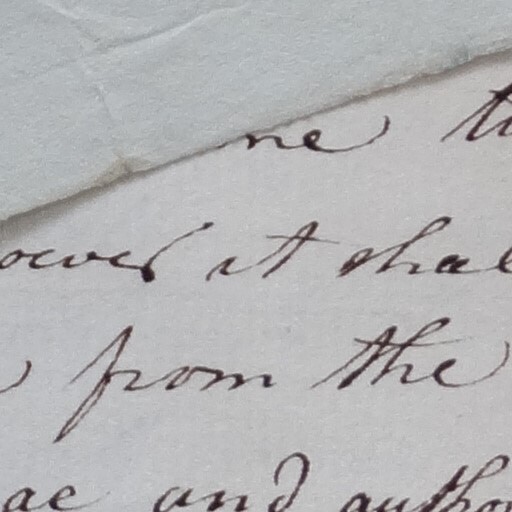 ne t
over it shal
from the
ae and autho